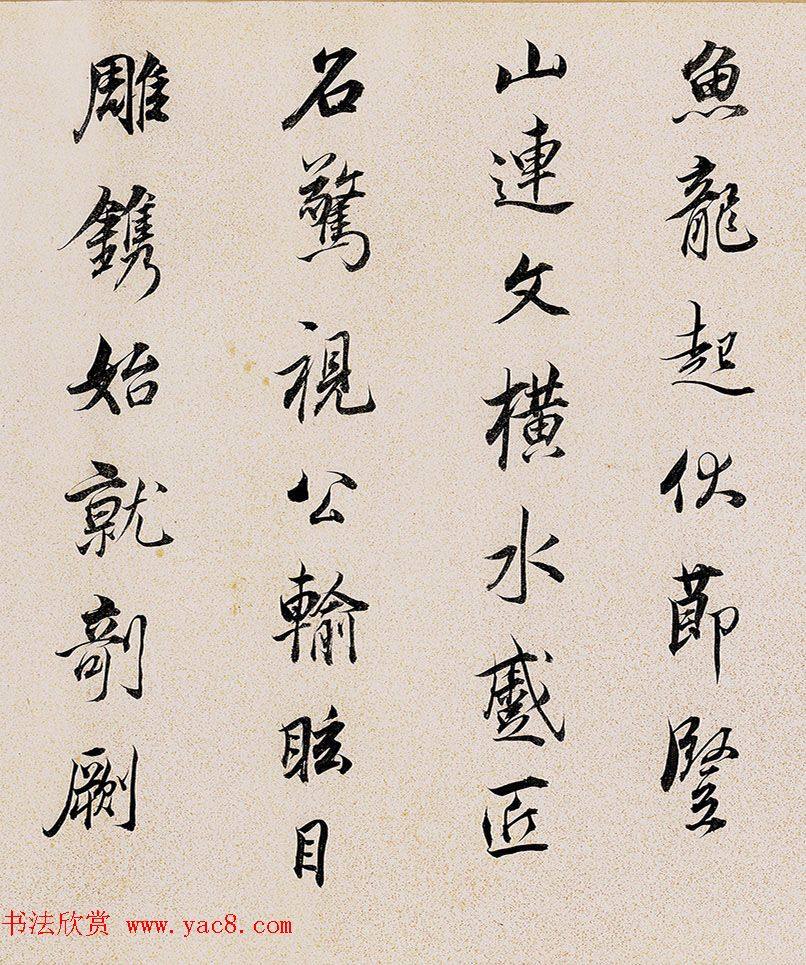 魚龍起伏莭竪
山連文橫水蹙匠
石驚視公輸眩目
雕鐫始就剞劂
书法欣赏 www.yac8.com